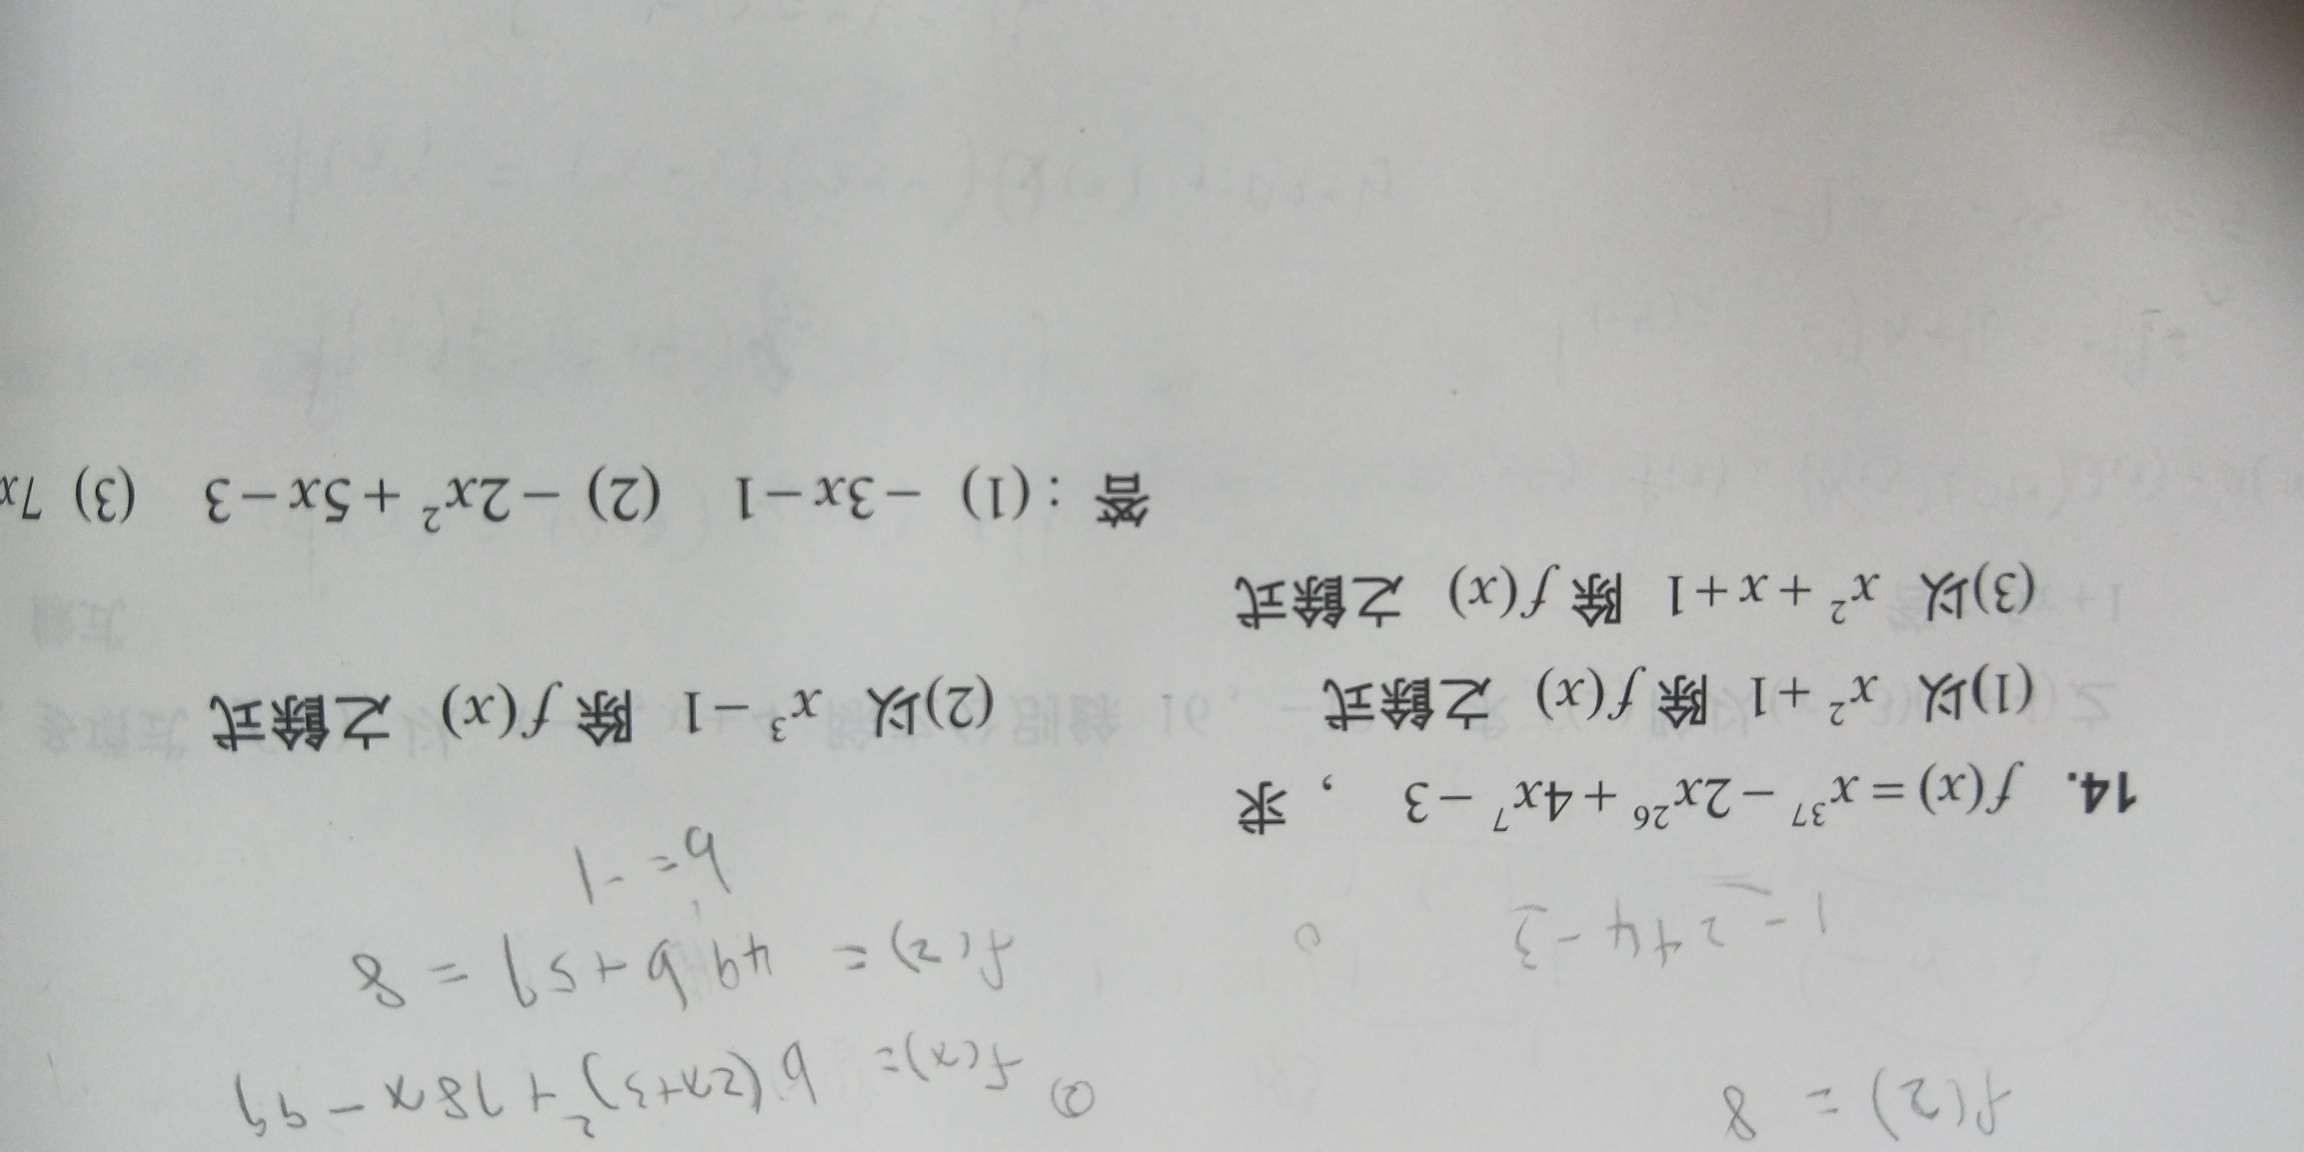 f(2) = 8
② f(x) = b(2x+3)² + 78x - 99
f(2) = 49b + 57 = 8
1 - 2 + 4 - 3
b = -1
14. f(x) = x³⁷ - 2x²⁶ + 4x⁷ - 3 ,求
(1)以 x² + 1 除 f(x) 之餘式 (2)以 x³ - 1 除 f(x) 之餘式
(3)以 x² + x + 1 除 f(x) 之餘式
答:(1) -3x - 1 (2) -2x² + 5x - 3 (3) 7x